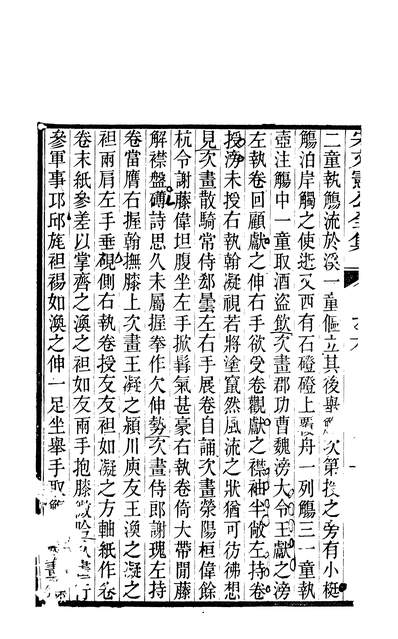 宋文憲公全集
二童執觴流於溪一童傴立其後與次第授之旁有小梃
觴泊岸觸之使逝又西有石磴磴上覆舟一列觴三一童執
壺注觴中一童取酒盜飲次畫郡功曹魏滂大令王獻之滂
左執卷回顧獻之伸右手欲受卷觀獻之襟袖半敞左持卷
授滂未授右執翰凝視若將塗竄然風流之狀猶可彷彿想
見次畫散騎常侍郄曇左右手展卷自誦次畫滎陽桓偉餘
杭令謝藤偉坦腹坐左手掀髯氣甚豪右執卷倚大帶閒藤
解襟盤礴詩思久未屬握拳作欠伸勢次畫侍郎謝瑰左持
卷當膺右握翰撫膝上次畫王凝之潁川庾友王渙之凝之
袒兩肩左手垂硯側右執卷授友友袒如凝之方軸紙作卷
卷末紙參差以掌齊之渙之袒如友兩手抱膝微吟次畫行
參軍事邛邱旄袒裼如渙之伸一足坐舉手取